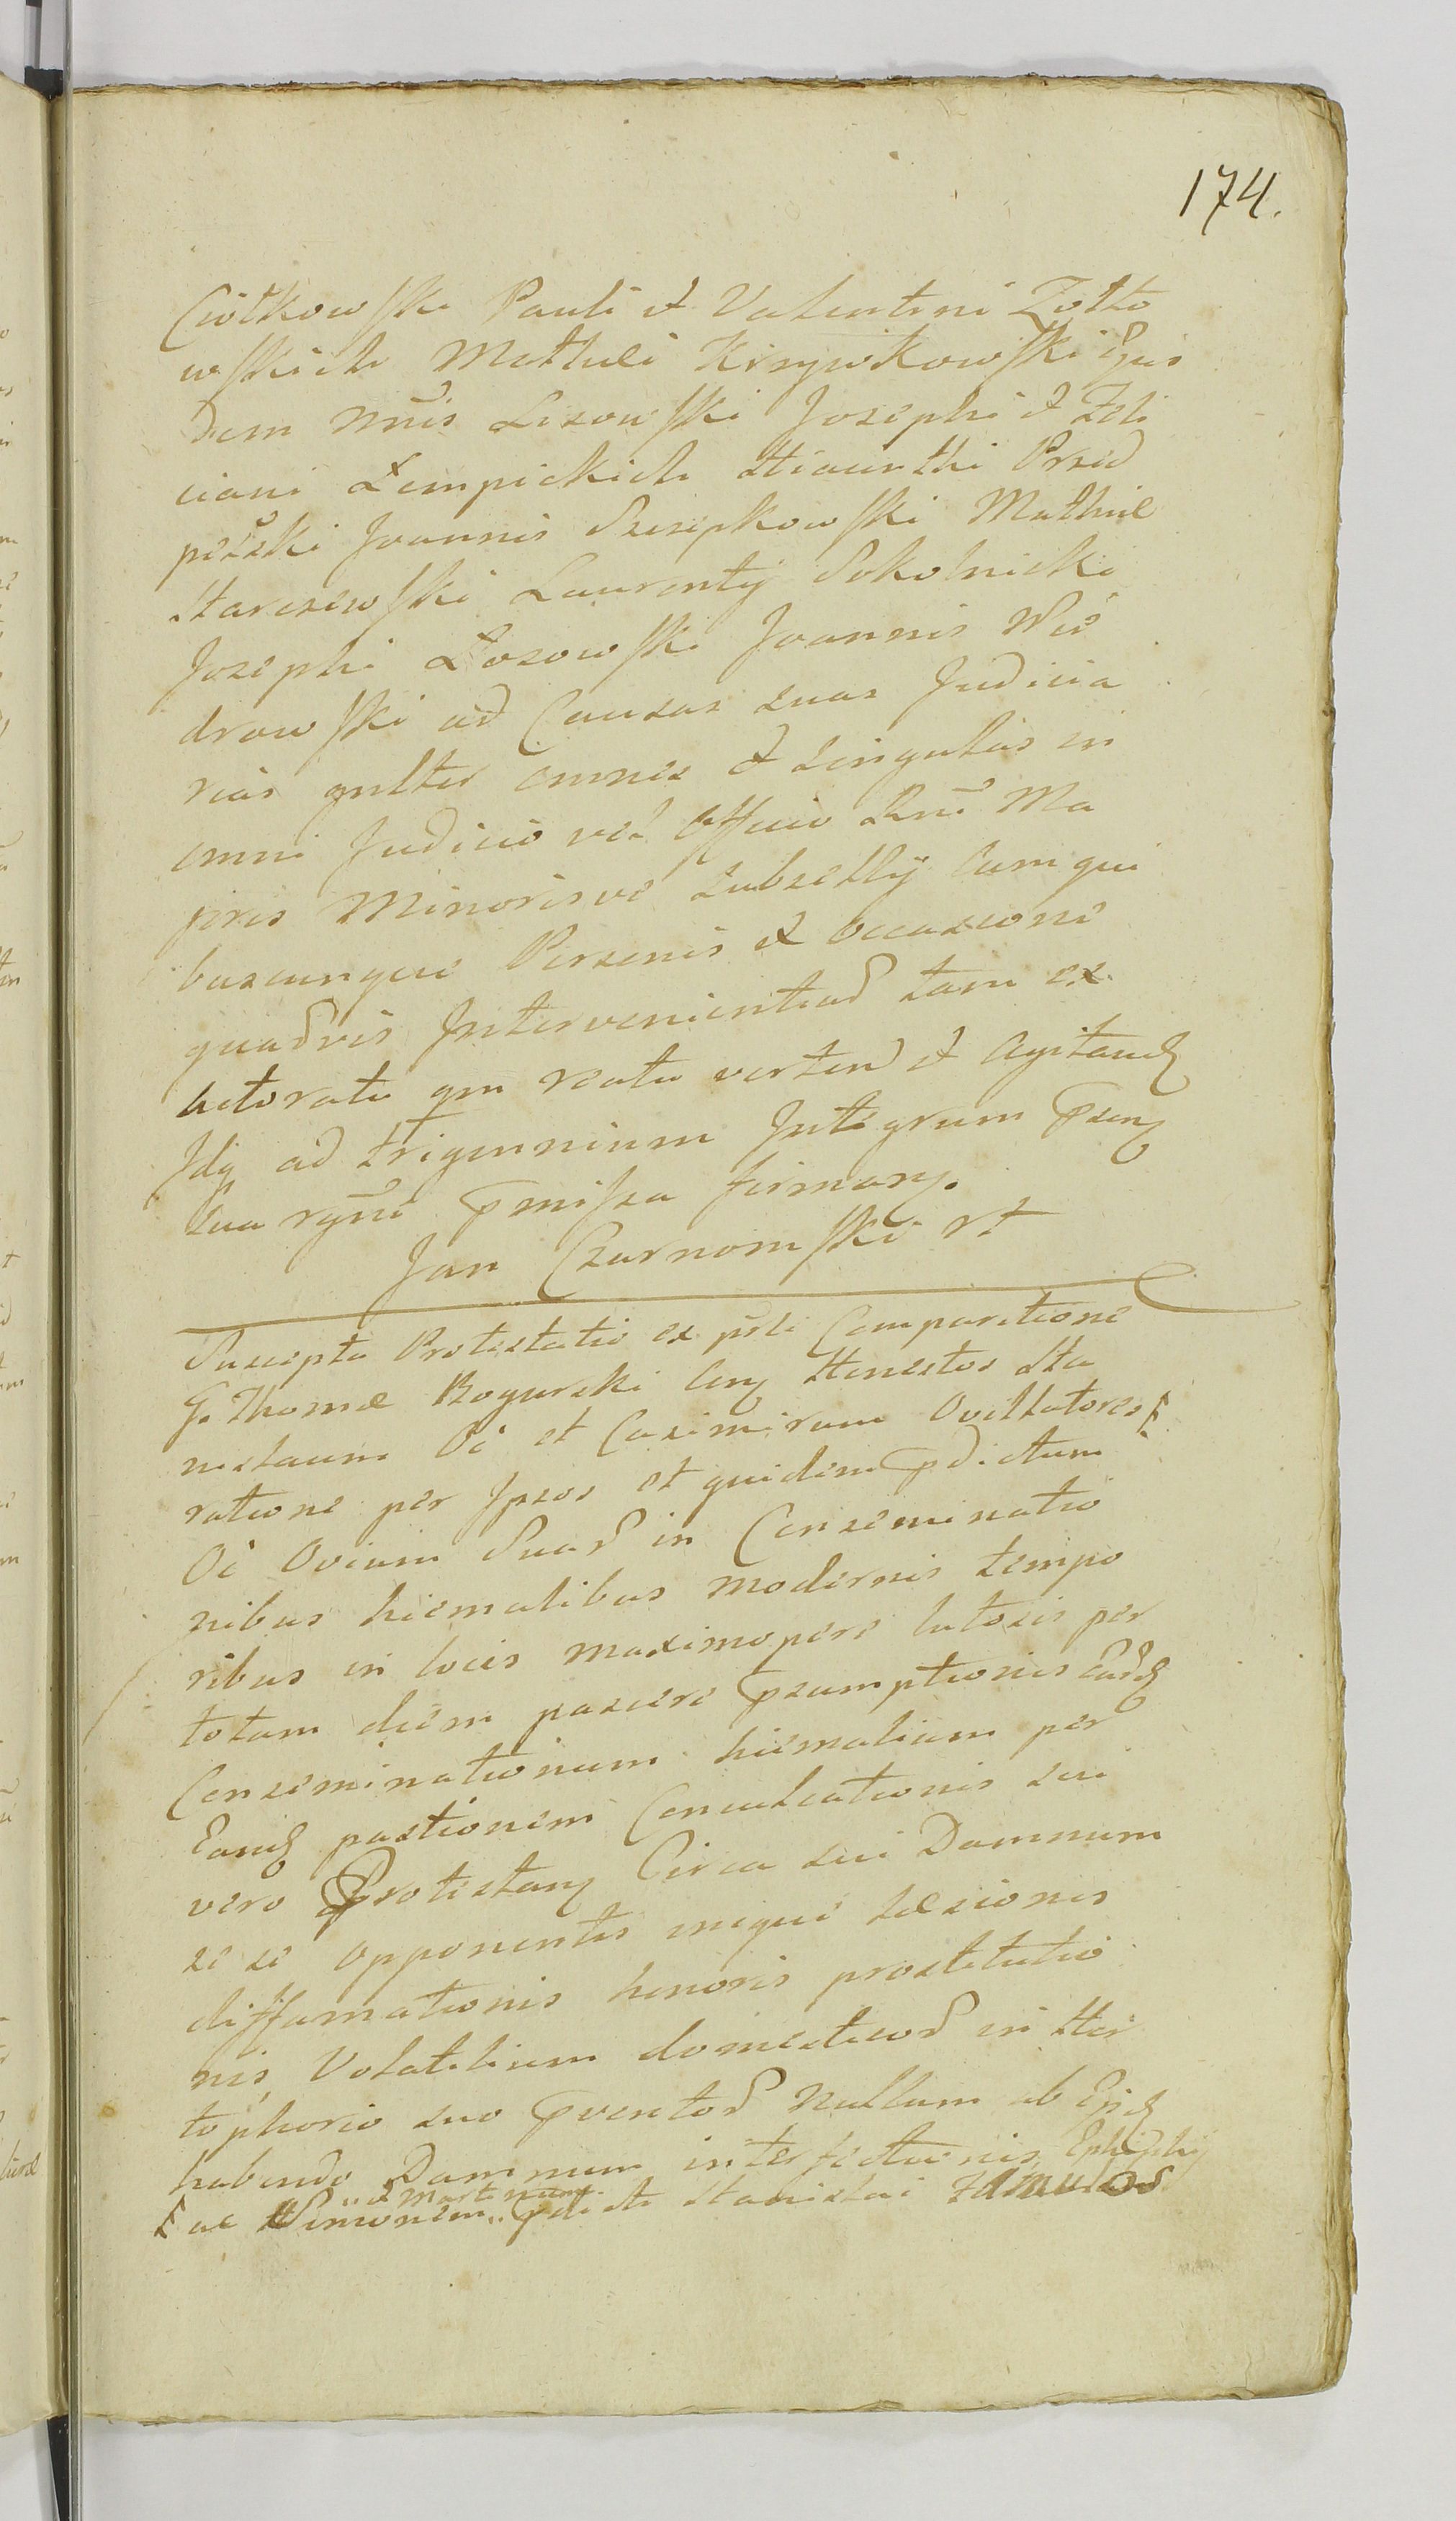 174.
Ciołkowski Pauli et Valentini Zołto
wskich Mathæi Krzywkowski Ejus
dem nnis Lisowski Josephi et Feli
ciani Łempickich Hiacinthi Przed
pełski Joannis Szczepkowski Mathiæ
Harczewski Laurentij Sokolnicki
Josephi Łosowski Joannis Wię
drowski ad Causas suas Judicia
rias gnlter omnes et singulas in
omni Judicio vel Officio Rni Ma
joris Minorisve Subsellij cum qui
buscunque Personis et occasione
quavis Intervenientiad tam ex
actoratu qm reatu verten et Agitand
Idq ad trigennium Integrum Psen
sua rgni pmissa firman.
Jan Czarnomski rt
Suscepta Protestatio ex psli Comparitione
G. Thomæ Rogurski Con Honestos Sta
nislaum Oć et Casimirum Ovillatores
ratione per Ipsos et quidem pdictum
Oć Ovium Suad in Conseminatio
nibus hiemalibus modernis tempo
ribus in locis maximopere lutosis per
totam diem pascere Psumptionis Eard
Conseminationum hiemalium per
Eand pastionem Conculcationis sui
vero Protestan Circa sui Damnum
se se opponentis inique læsionis
diffamationis honoris prostitutio
nis Volatilium domesticod in Her
tophorio suo pventod Nullum ab Eisd
habendo Damnum interfectionis Ephiphij
ac Simonem et Martinum pdicti Stanislai famulos